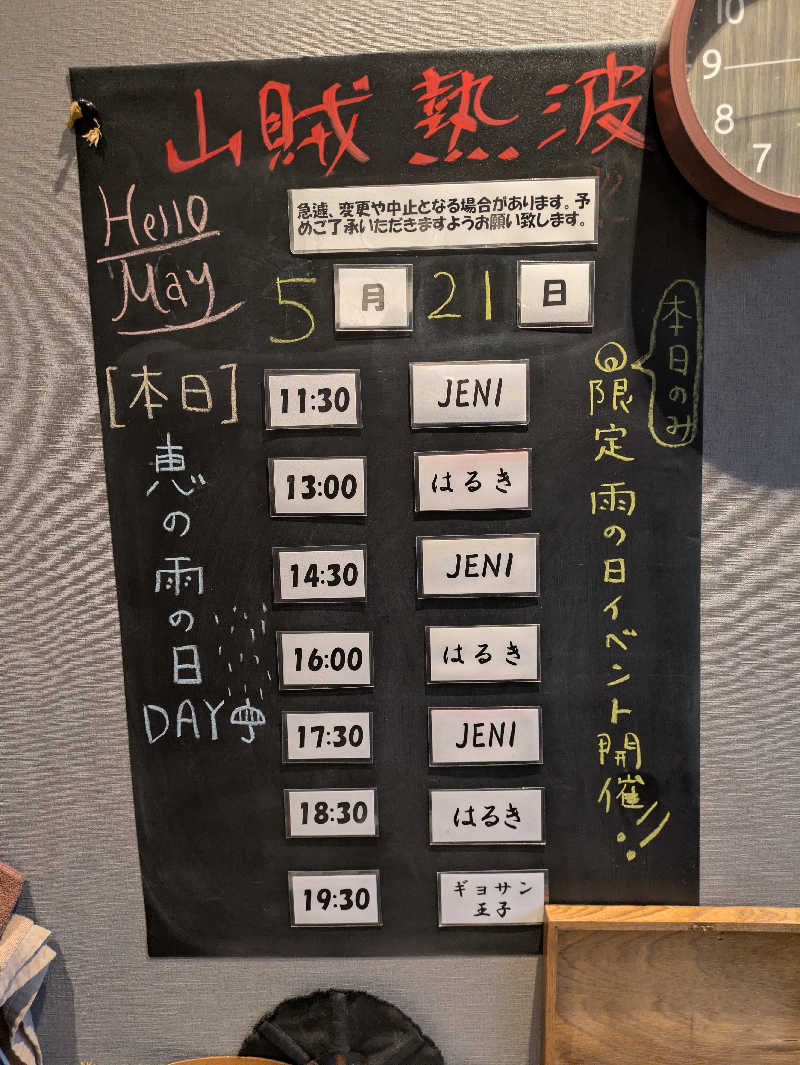 山賊熱波
Hello
May
急遽、変更や中止となる場合があります。予
めご了承いただきますようお願い致します。
5月21日
[本日]
恵の雨の日
DAY
11:30 JENI
13:00 はるき
14:30 JENI
16:00 はるき
17:30 JENI
18:30 はるき
19:30 ギョサン
王子
本日のみ
限定雨の日イベント開催!!
10
9
8
7